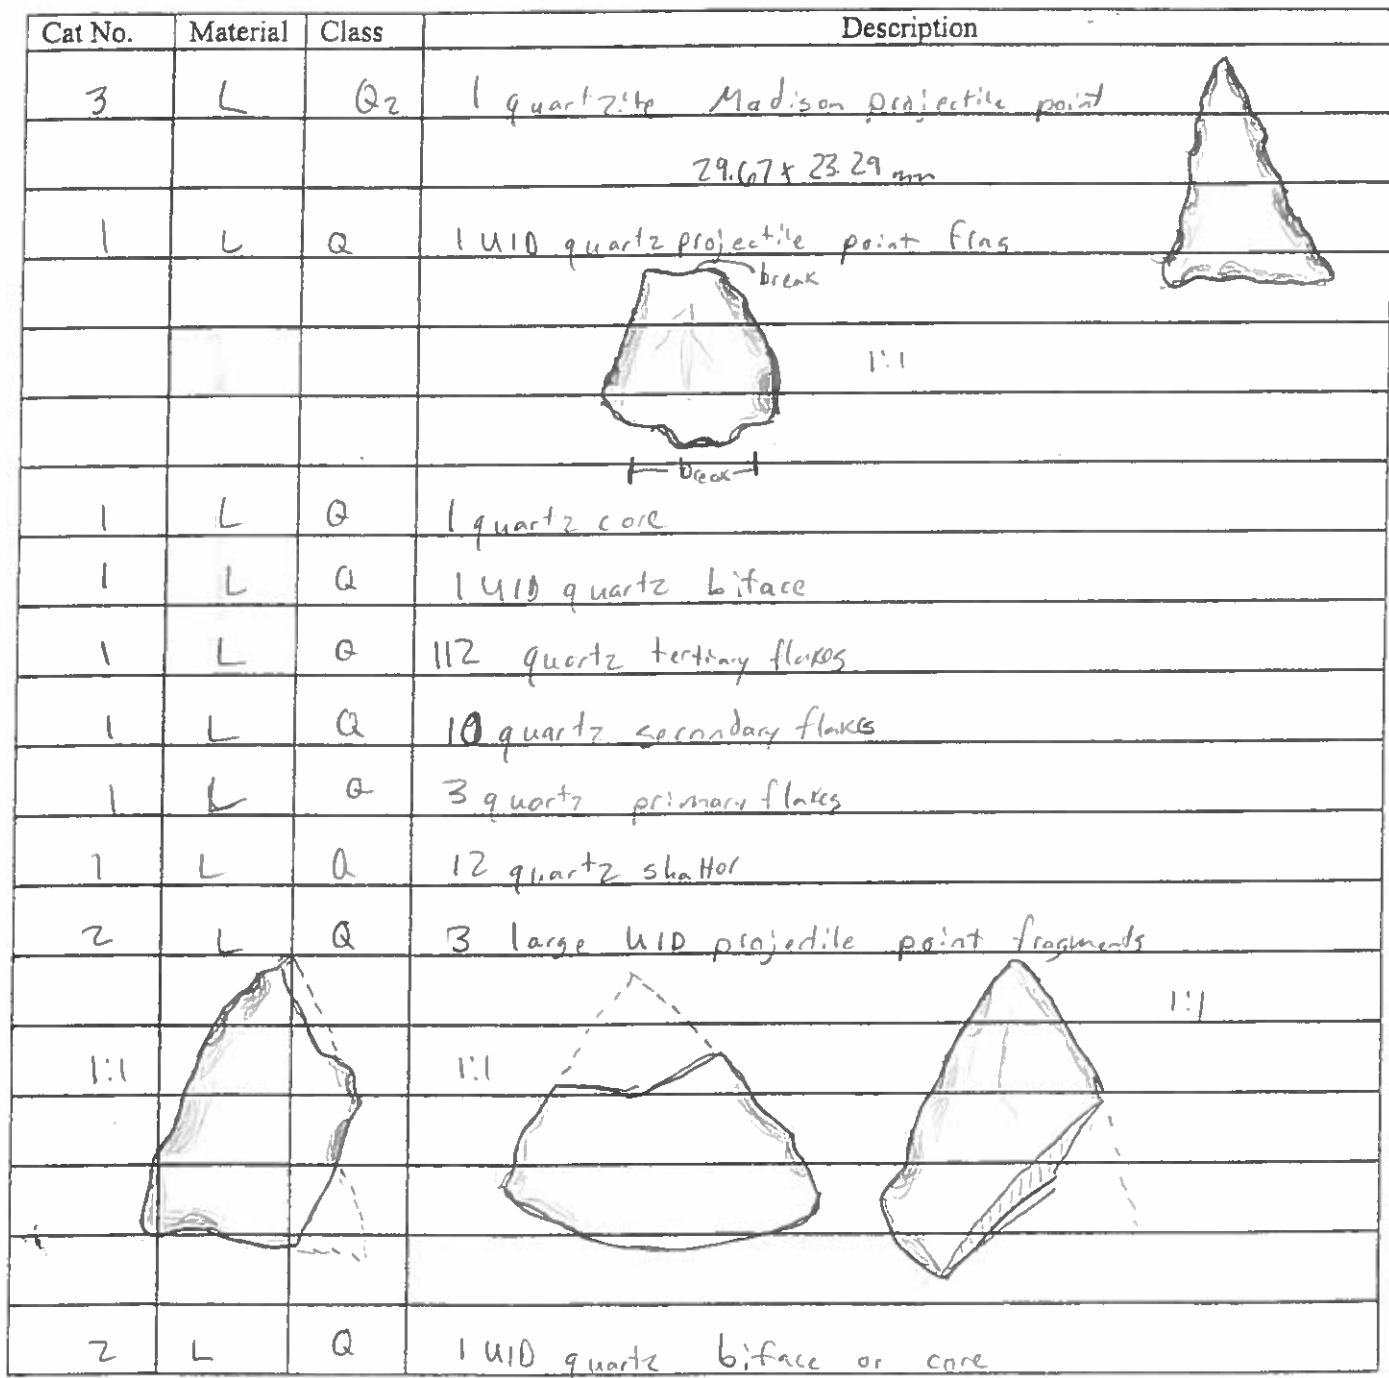 Cat No. Material Class Description
3 L Qz 1 quartzite Madison projectile point
29.67 x 23.29 mm
1 L Q 1 UID quartz projectile point frag
break
1:1
break
1 L Q 1 quartz core
1 L Q 1 UID quartz biface
1 L Q 112 quartz tertiary flakes
1 L Q 10 quartz secondary flakes
1 L Q 3 quartz primary flakes
1 L Q 12 quartz shatter
2 L Q 3 large UID projectile point fragments
1:1
1:1 1:1
2 L Q 1 UID quartz biface or core